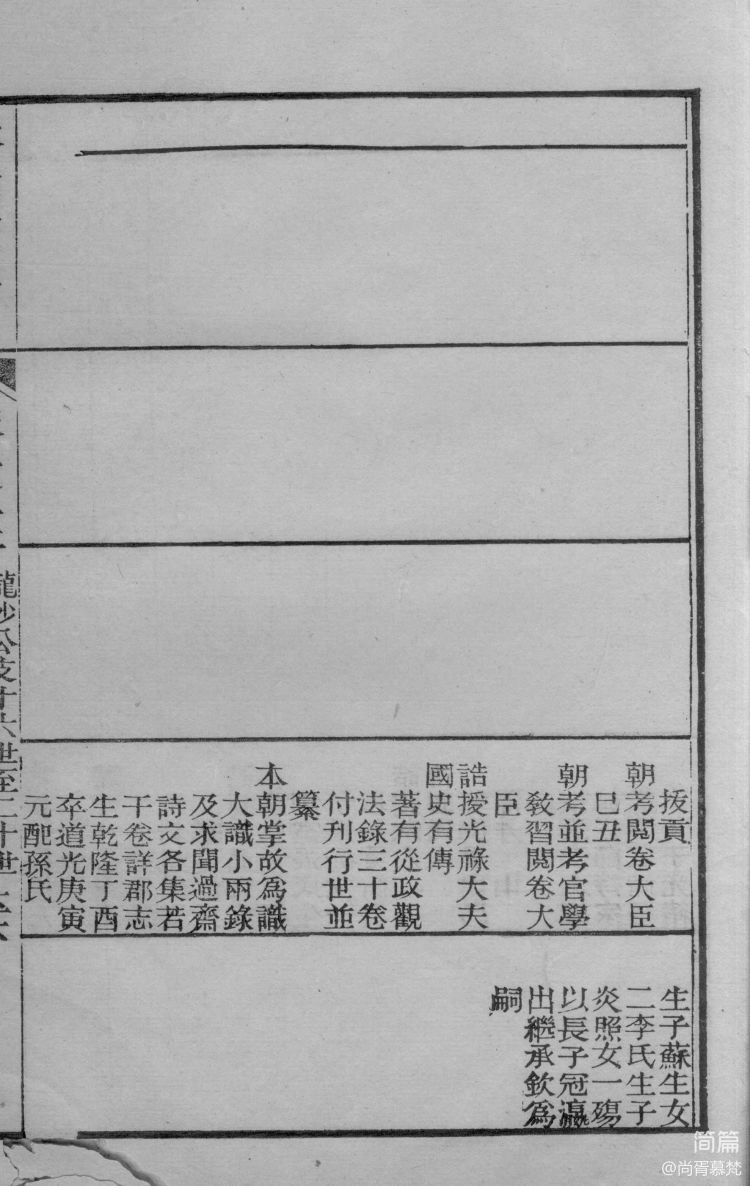 拔貢
朝考閱卷大臣
巳丑
朝考並考官學
敎習閱卷大
臣
誥授光祿大夫
國史有傳
著有從政觀
法錄三十卷
付刊行世並
纂
本朝掌故爲識
大識小兩錄
及求聞過齋
詩文各集若
干卷詳郡志
生乾隆丁酉
卒道光庚寅
元配孫氏
生子蘇生女
二李氏生子
炎照女一殤
以長子冠瀛
出繼承欽爲
嗣
公支十六世至二十世
简篇
@尚胥慕梵